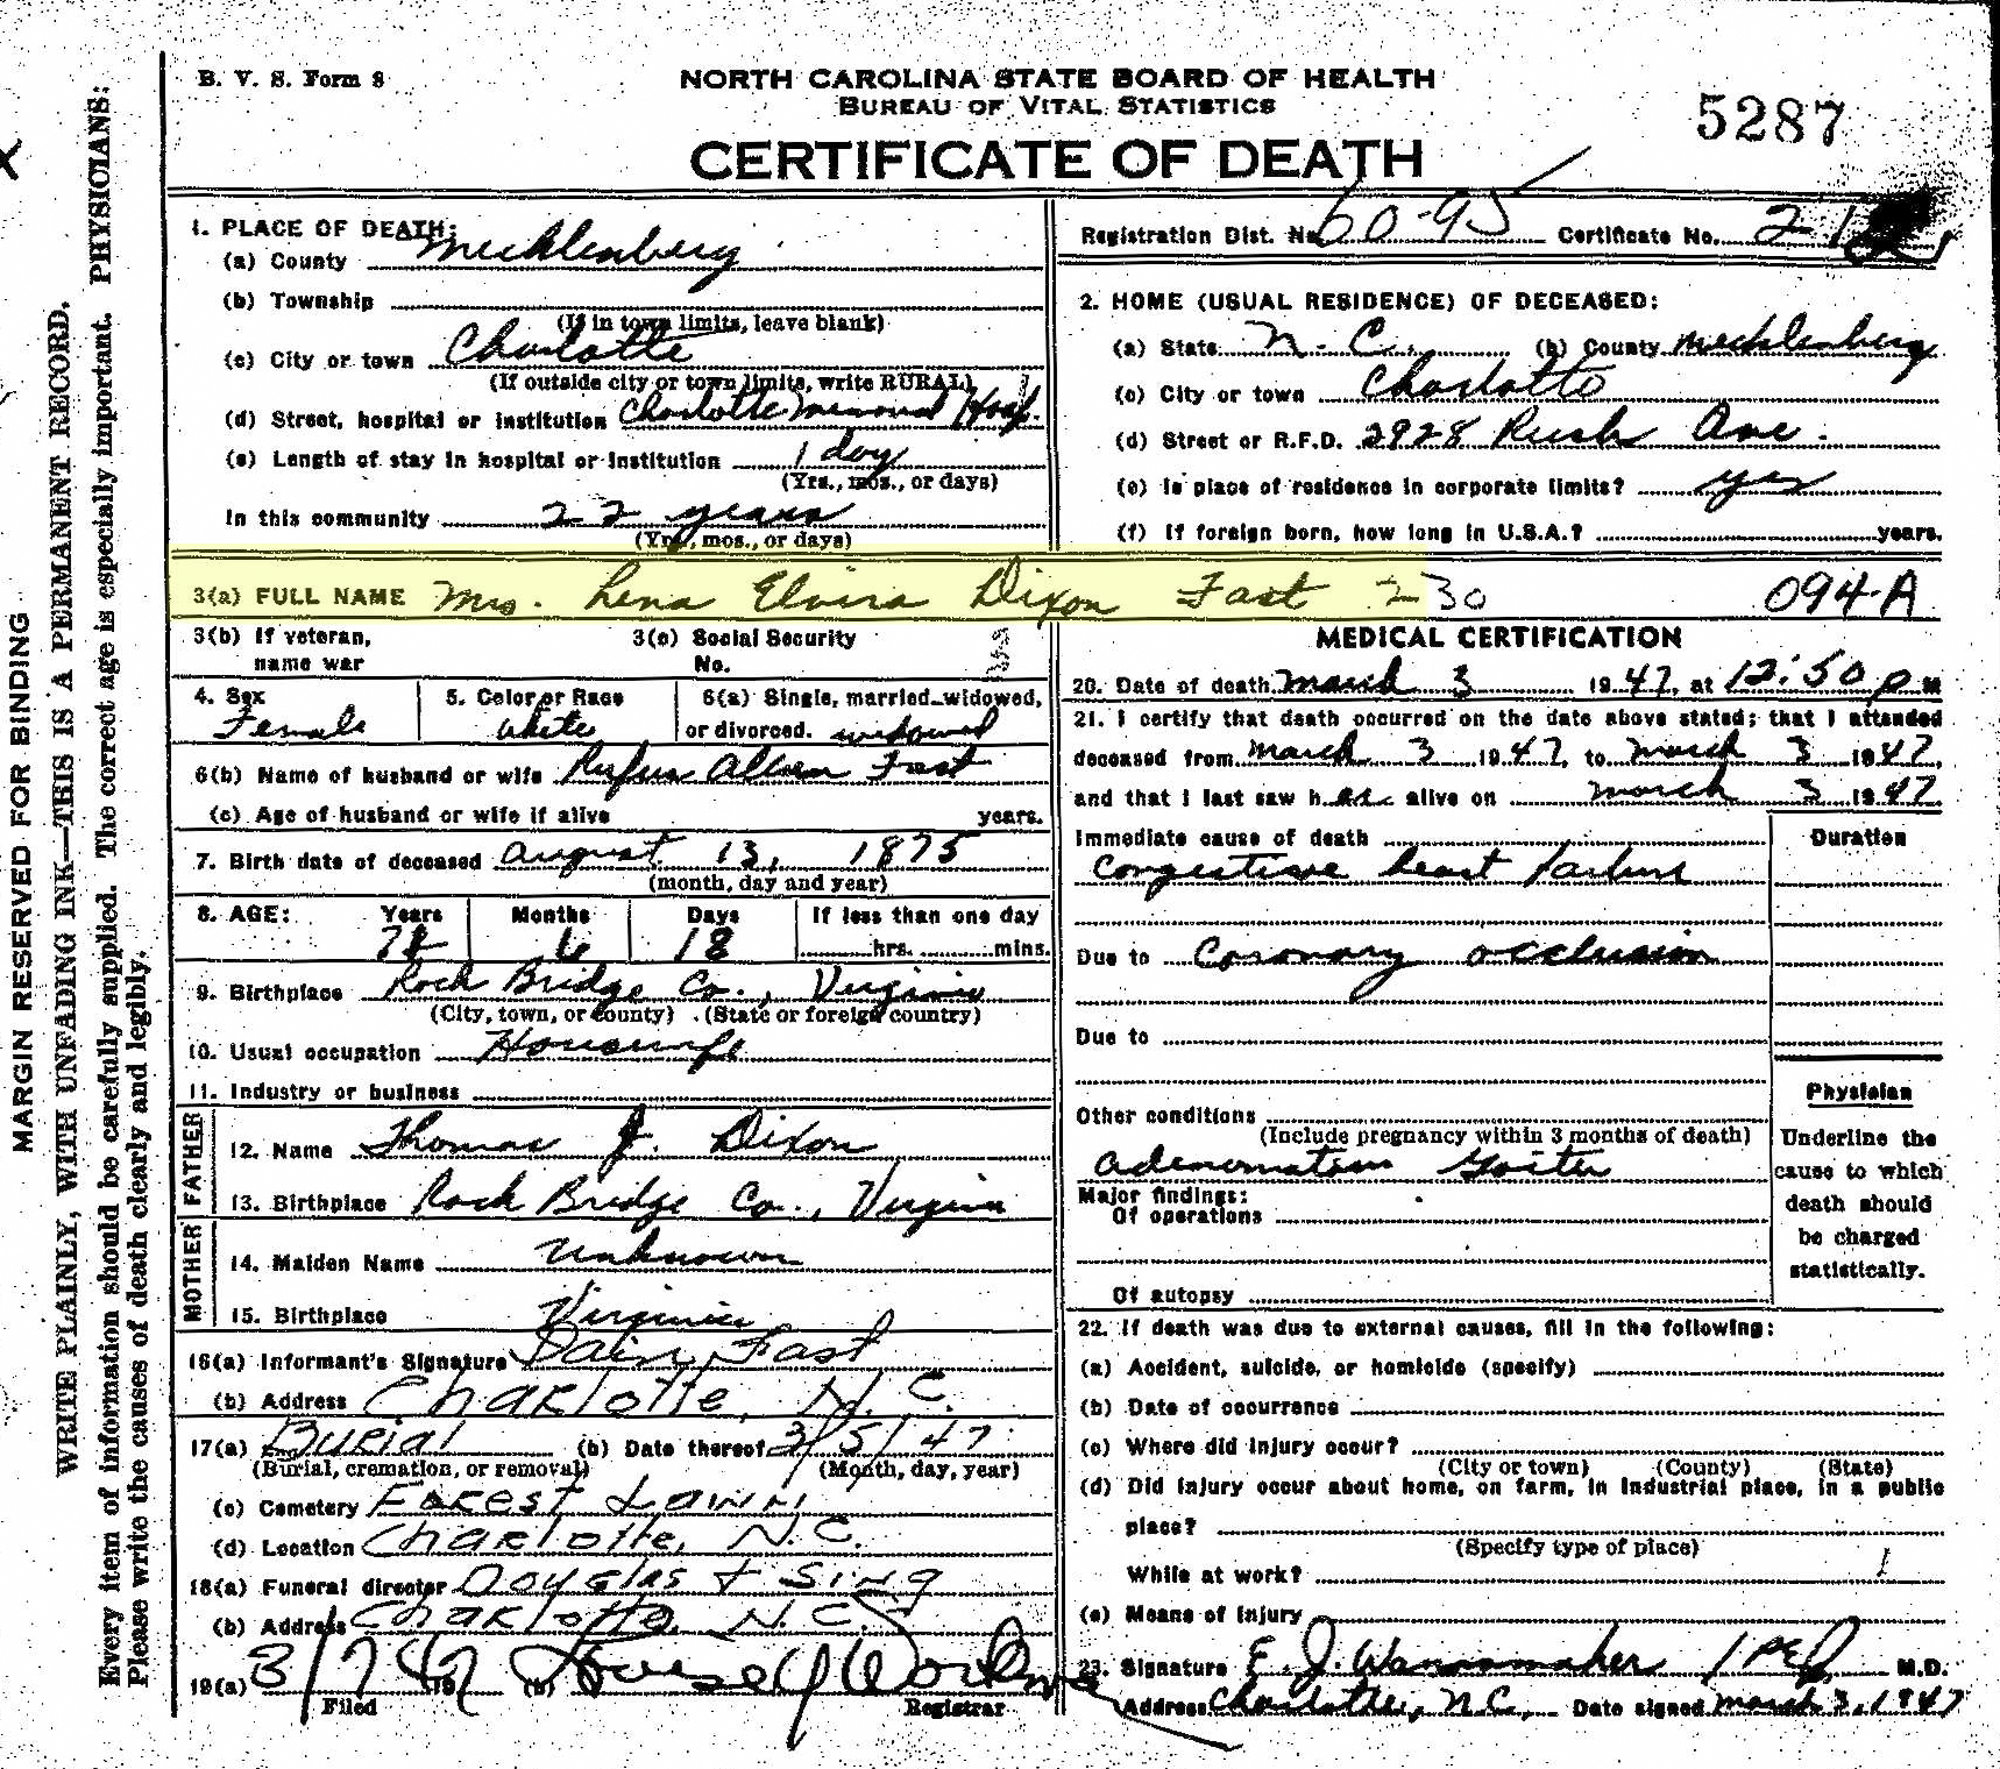 B. V. S. Form 8
NORTH CAROLINA STATE BOARD OF HEALTH
BUREAU OF VITAL STATISTICS
CERTIFICATE OF DEATH
5287
MARGIN RESERVED FOR BINDING
WRITE PLAINLY, WITH UNFADING INK—THIS IS A PERMANENT RECORD.
Every item of information should be carefully supplied. The correct age is especially important. PHYSICIANS:
Please write the causes of death clearly and legibly.
1. PLACE OF DEATH:
(a) County Mecklenberg
(b) Township
(If in town limits, leave blank)
(c) City or town Charlotte
(If outside city or town limits, write RURAL)
(d) Street, hospital or institution Charlotte Memorial Hosp.
(e) Length of stay in hospital or institution 1 day
(Yrs., mos., or days)
In this community 22 years
(Yrs., mos., or days)
Registration Dist. No. 60-95 Certificate No.
2. HOME (USUAL RESIDENCE) OF DECEASED:
(a) State N. C. (b) County Mecklenberg
(c) City or town Charlotte
(d) Street or R.F.D. 2928 Rush Ave.
(e) Is place of residence in corporate limits? yes
(f) If foreign born, how long in U.S.A.? years.
3(a) FULL NAME Mrs. Lena Elvira Dixon Fast 230 094-A
3(b) If veteran, name war
3(c) Social Security No.
4. Sex Female
5. Color or Race White
6(a) Single, married, widowed, or divorced. widowed
6(b) Name of husband or wife Rufus Allen Fast
(c) Age of husband or wife if alive years.
7. Birth date of deceased August 13, 1875
(month, day and year)
8. AGE: Years Months Days If less than one day
6 18 hrs. mins.
9. Birthplace Rock Bridge Co., Virginia
(City, town, or county) (State or foreign country)
10. Usual occupation Housewife
11. Industry or business
FATHER
12. Name Thomas J. Dixon
13. Birthplace Rock Bridge Co., Virginia
MOTHER
14. Maiden Name Unknown
15. Birthplace Virginia
16(a) Informant's Signature Fast
(b) Address Charlotte, N. C.
17(a) Burial (b) Date thereof 3/5/47
(Burial, cremation, or removal) (Month, day, year)
(c) Cemetery Forest Lawn
(d) Location Charlotte, N. C.
18(a) Funeral director Douglas & Sing
(b) Address Charlotte, N. C.
19(a) 3/7 47 (b)
Filed Registrar
MEDICAL CERTIFICATION
20. Date of death March 3 1947, at 12:50 P M
21. I certify that death occurred on the date above stated; that I attended
deceased from March 3 1947, to March 3 1947,
and that I last saw her alive on March 3 1947
Immediate cause of death Duration
Congestive heart failure
Due to Coronary occlusion
Due to
Other conditions
(Include pregnancy within 3 months of death)
Adenomatous Goiter
Major findings:
Of operations
Of autopsy
Physician
Underline the
cause to which
death should
be charged
statistically.
22. If death was due to external causes, fill in the following:
(a) Accident, suicide, or homicide (specify)
(b) Date of occurrence
(c) Where did injury occur?
(City or town) (County) (State)
(d) Did injury occur about home, on farm, in industrial place, in a public
place?
(Specify type of place)
While at work?
(e) Means of injury
23. Signature E. J. Wannamaker M.D.
Address Charlotte, N.C. Date signed March 3, 1947